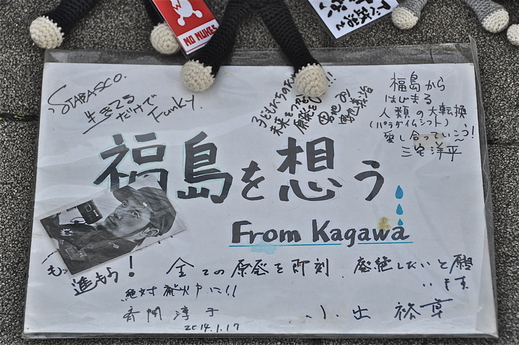 STABASCO.
生きてる
だけで
Funky.
子どもたちの
未来をつぶす
原発
福島から
はじまる
人類の大転換
(パラダイムシフト)
愛し合っていこう!
三宅洋平
福島を想う
From Kagawa
もっ
進もう!
全ての原発を即刻、廃絶したいと願
います
絶対廃炉に!!
斉間淳子
2014.1.17
小出裕章